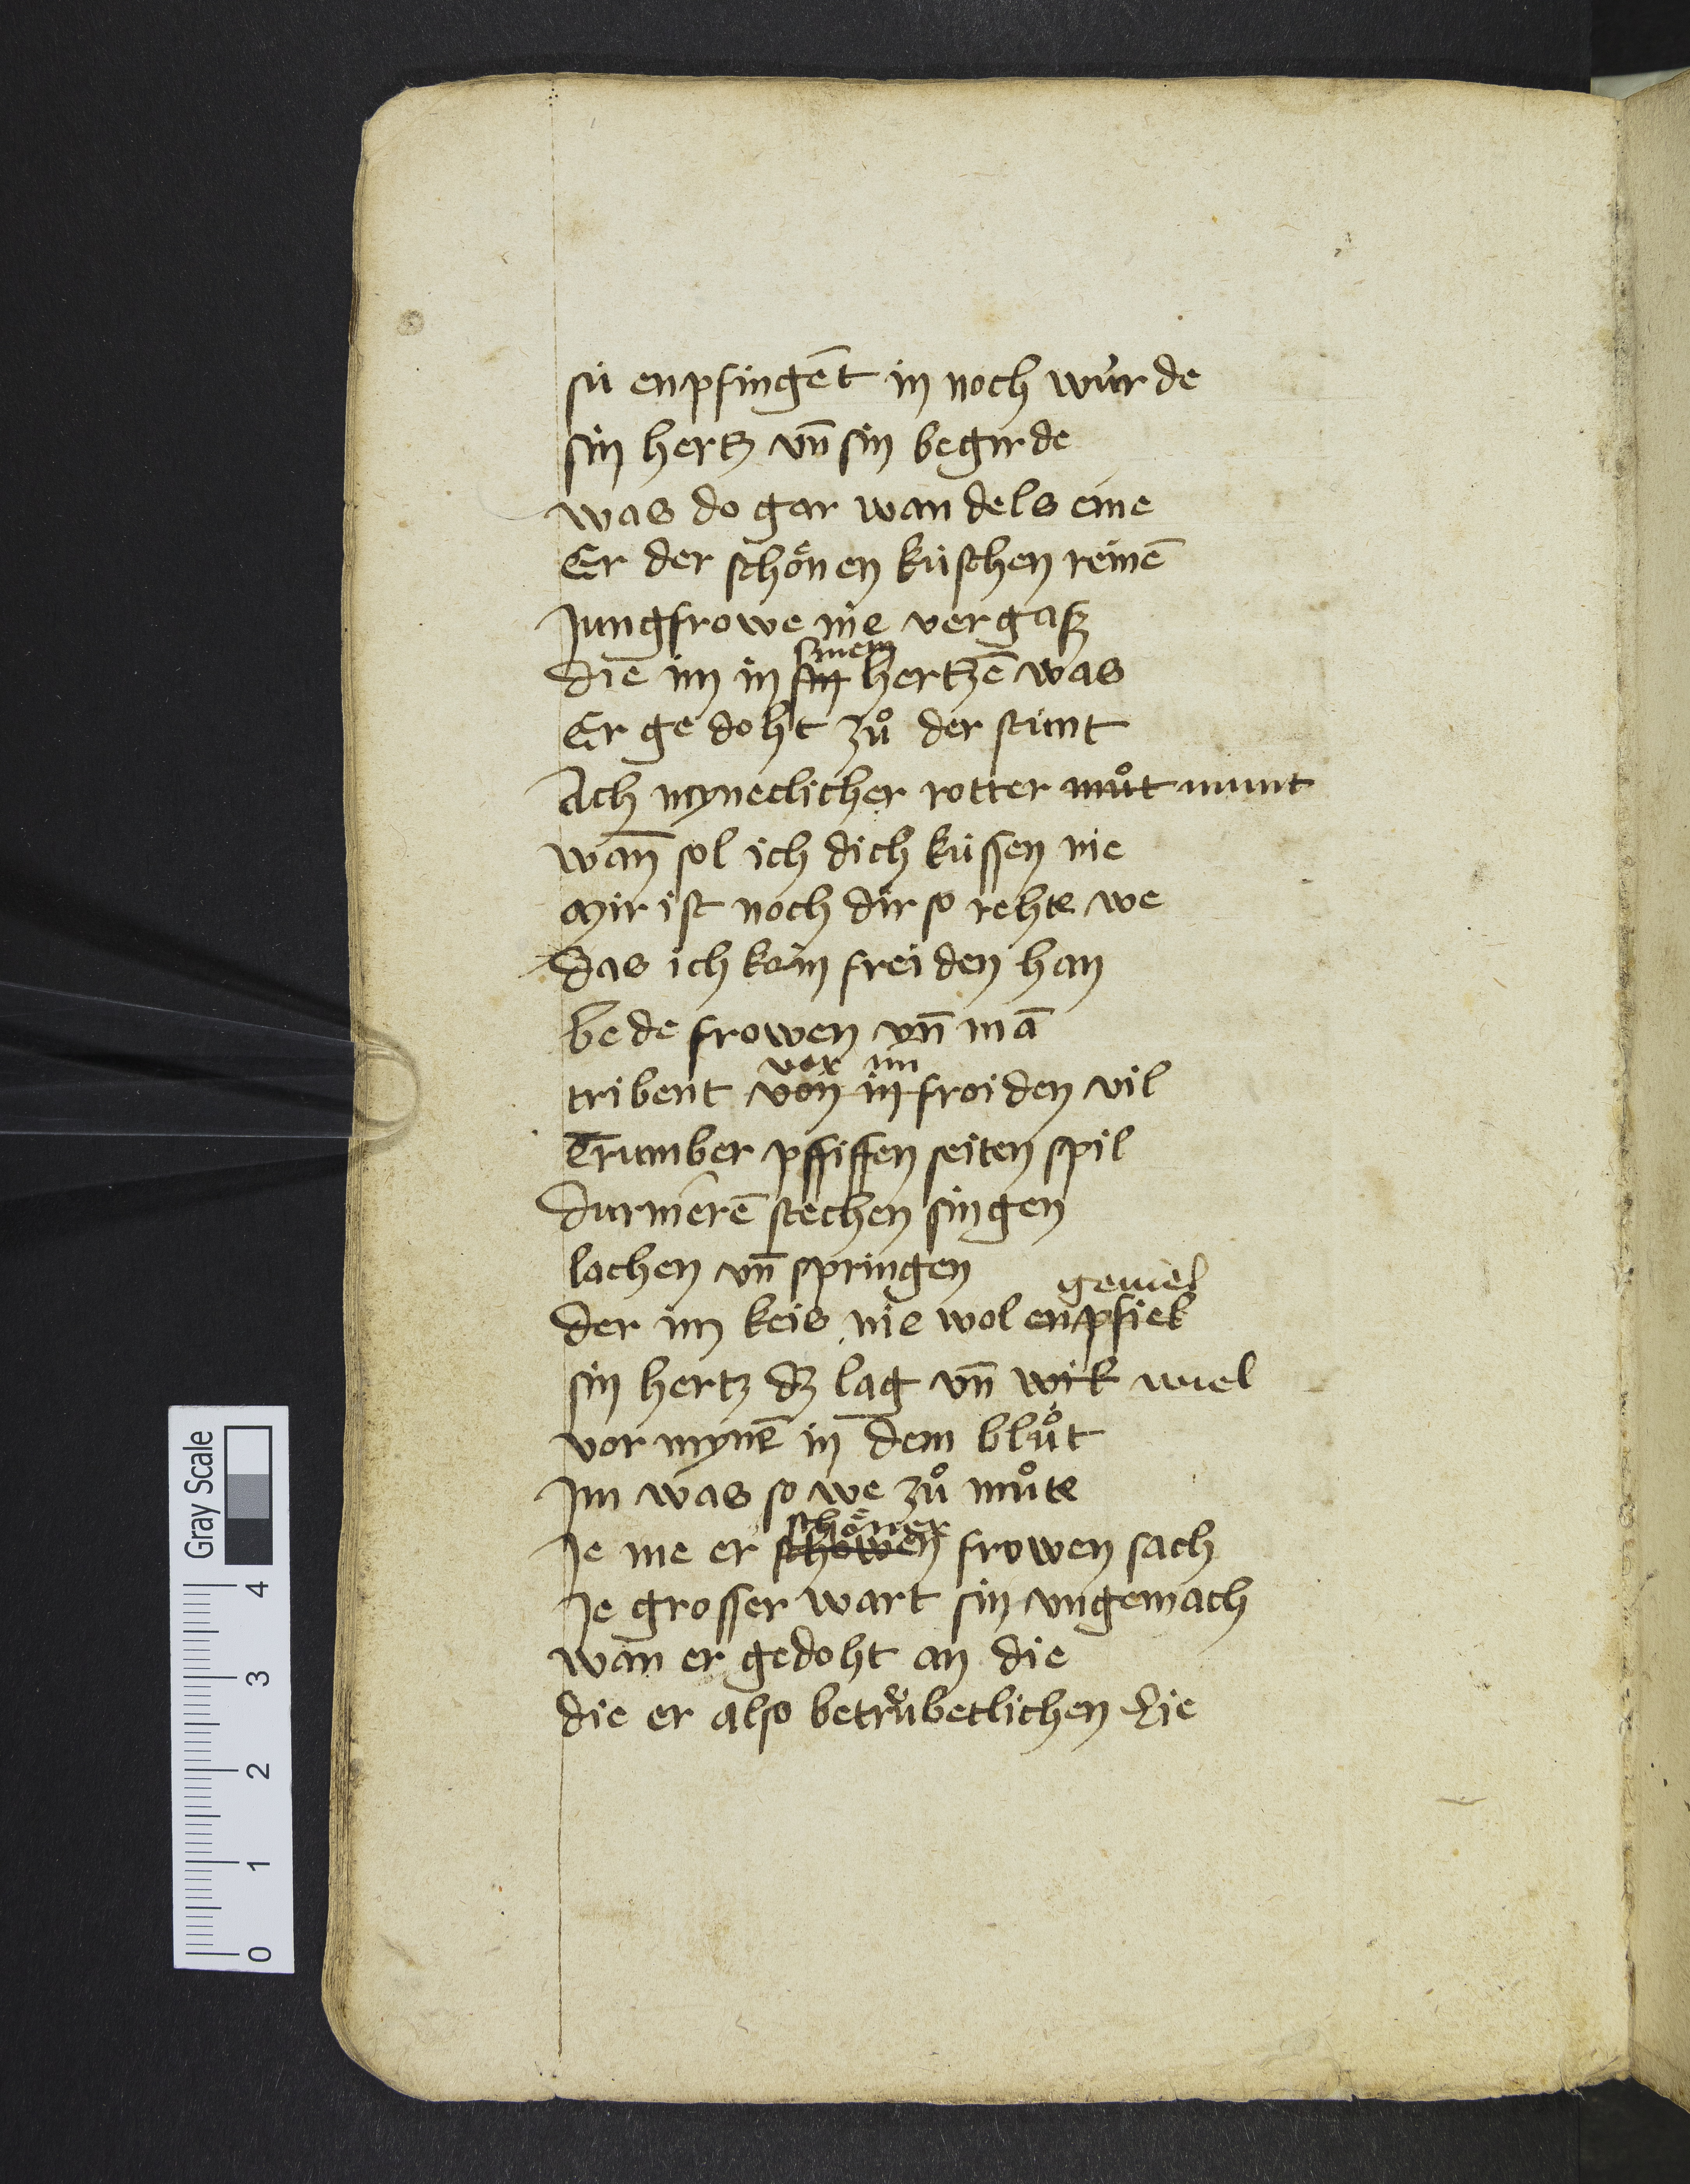 sú enpfingēt in noch wúrde
sin hertz vn̄ sin begirde
was do gar wandels eine
Er der schoͤnen kúschen reinē
Jungfrowe nie vergaſz
sinem
die im in sin hertzē was
Er gedoht zuͦ der stunt
Ach myneclicher rotter muͦt munt
wan̄ sol ich dich kússen me
mir ist noch dir so rehte we
das ich kein freiden han
bede frowen vn̄ mā
vor im
tribent von in froiden vil
Trumber pfiffen seiten spil
durnierē stechen singen
lachen vn̄ springen
geuiel
der im keis nie wol enpfiek
sin hertz dz lag vn̄ wik wiel
vor mynē in dem bluͦt
Jm was so we zuͦ muͦte
schoͤner
Je me er schowen frowen sach
Je grosser wart sin vngemach
wan er gedoht an die
die er also betruͤbetlichen lie
Gray Scale
0 1 2 3 4